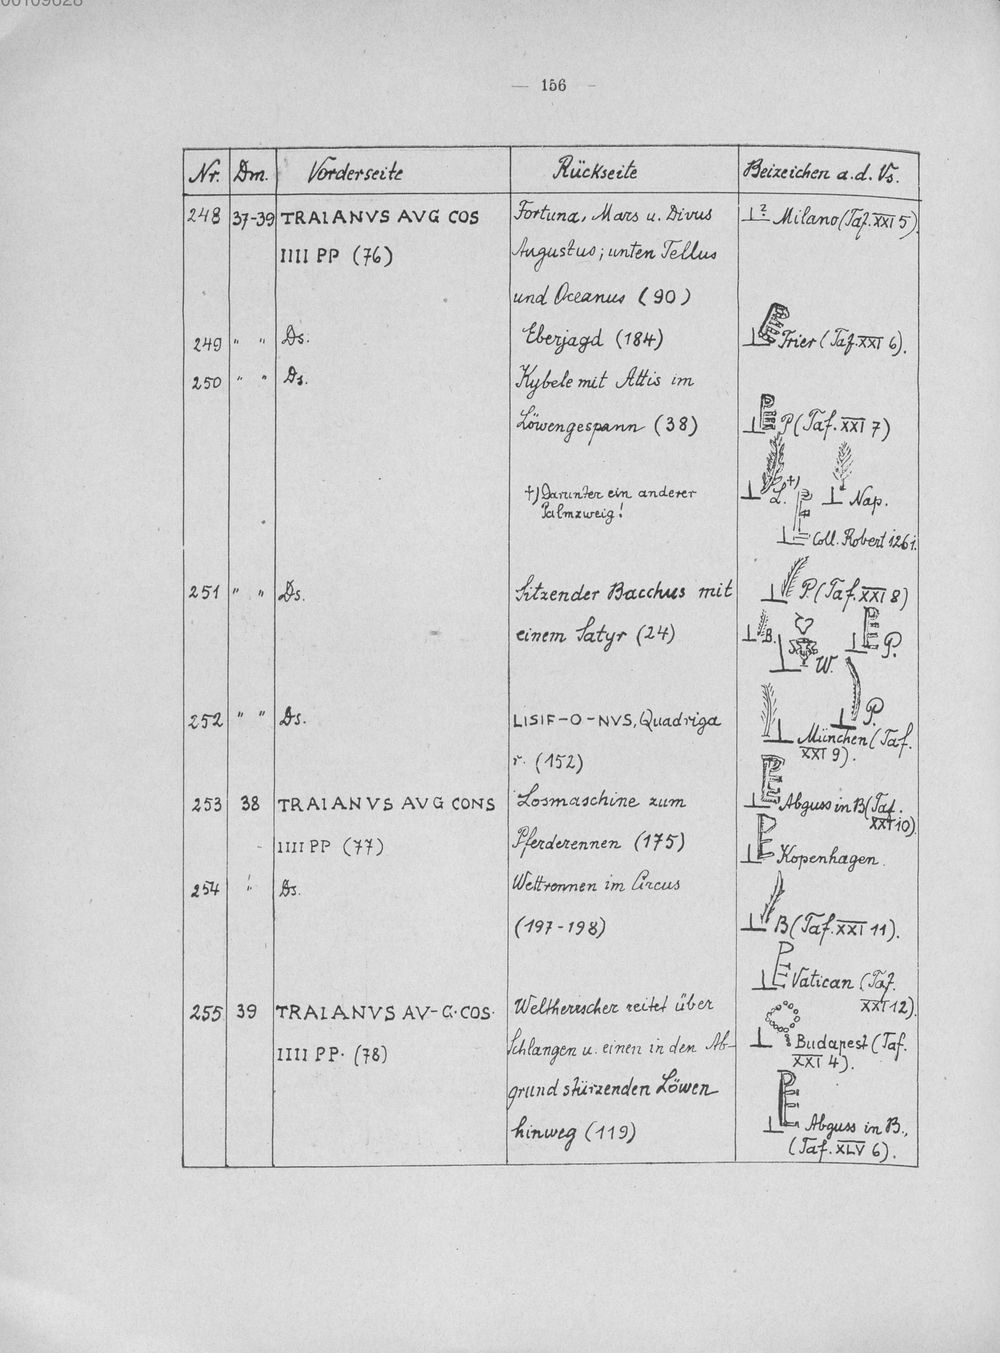 00109628
— 156 –
Nr. Dm. Vorderseite Rückseite Beizeichen a.d. Vs.
248 37-39 TRAIANVS AVG COS Fortuna, Mars u. Divus ? Milano (Taf. XXI 5).
IIII PP (76) Augustus; unten Tellus
und Oceanus (90)
249 " " Ds. Eberjagd (184) Trier (Taf. XXI 6).
250 " " Ds. Kybele mit Attis im
Löwengespann (38) P (Taf. XXI 7)
†) Darunter ein anderer L. †) Nap.
Palmzweig!
Coll. Robert 1261.
251 " " Ds. Sitzender Bacchus mit P (Taf. XXI 8)
einem Satyr (24) B. P.
W.
252 " " Ds. LISIF-O-NVS, Quadriga P.
r. (152) München (Taf.
XXI 9).
253 38 TRAIANVS AVG CONS Losmaschine zum Abguss in B (Taf.
XXI 10)
IIII PP (77) Pferderennen (175) Kopenhagen.
254 " Ds. Wettrennen im Circus
(197-198) B (Taf. XXI 11).
Vatican (Taf.
XXI 12).
255 39 TRAIANVS AV-G·COS· Weltherrscher reitet über
IIII PP· (78) Schlangen u. einen in den Ab- Budapest (Taf.
XXI 4).
grund stürzenden Löwen
hinweg (119) Abguss in B.,
(Taf. XLV 6).